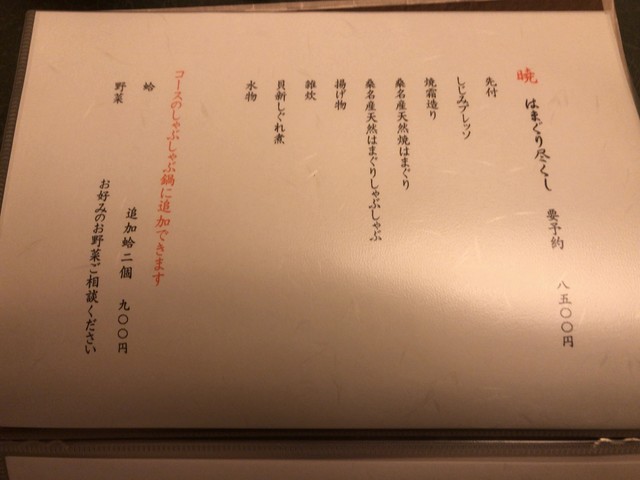 暁 はまぐり尽くし 要予約 八五〇〇円
先付
しじみプレッソ
焼霜造り
桑名産天然焼はまぐり
桑名産天然はまぐりしゃぶしゃぶ
揚げ物
雑炊
貝新しぐれ煮
水物
コースのしゃぶしゃぶ鍋に追加できます
蛤 追加蛤二個 九〇〇円
野菜 お好みのお野菜ご相談ください